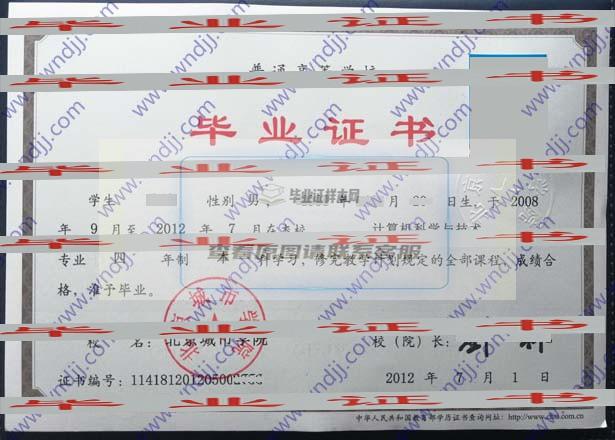 普通高等学校
毕业证书
学生 性别 男 月 日生，于 2008
年 9 月至 2012 年 7 月在本校 计算机科学与技术
专业 四 年制 本 科学习，修完教学计划规定的全部课程，成绩合
格，准予毕业。
毕业证样本网
查看原图请联系客服
校 名：北京城市学院
校（院）长：
证书编号：114181201205002
2012 年 7 月 1 日
中华人民共和国教育部学历证书查询网址：http://www.chsi.com.cn
www.wndjj.com